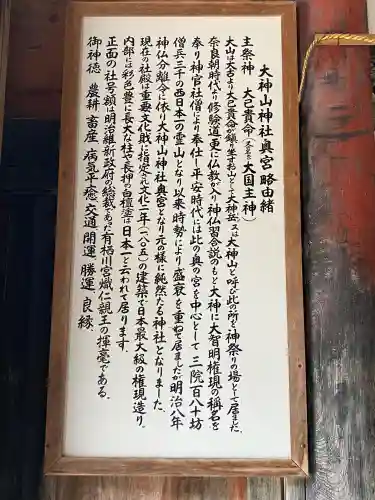 大神山神社奥宮略由緒
主祭神 大己貴命(又の名を大国主神)
大山は太古より大己貴命が鎮り坐すお山として大神岳又は大神山と呼び此の所を神祭りの場として居ました。
奈良朝時代から修験道更に仏教が入り神仏習合説のもと大神に大智明権現の稱名を
奉り神官社僧により奉仕し平安時代には此の奥の宮を中心として三院百八十坊
僧兵三千の西日本一の霊山となり以来時勢により盛衰を重ねて居ましたが明治八年
神仏分離令に依り大神山神社奥宮となり元の様に純然たる神社となりました。
現在の社殿は重要文化財に指定され文化二年(一八〇五)の建築で日本最大級の権現造り。
内部には彩色豊に長大な柱や長押の白檀塗は日本一と云われて居ります。
正面の社号額は明治維新政府の総裁であった有栖川宮熾仁親王の揮毫である。
御神徳 農耕 畜産 病気平癒 交通 開運 勝運 良縁、